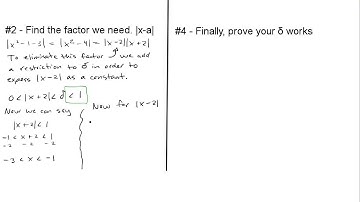 #2 - Find the factor we need. |x-a|
|x²-1-3| = |x²-4| = |x-2||x+2|
To eliminate this factor we add
a restriction to δ in order to
express |x-2| as a constant.
0 < |x+2| < δ < 1
Now we can say
|x+2| < 1
-1 < x+2 < 1
-2 -2 -2
-3 < x < -1
Now for |x-2|
#4 - Finally, prove your δ works